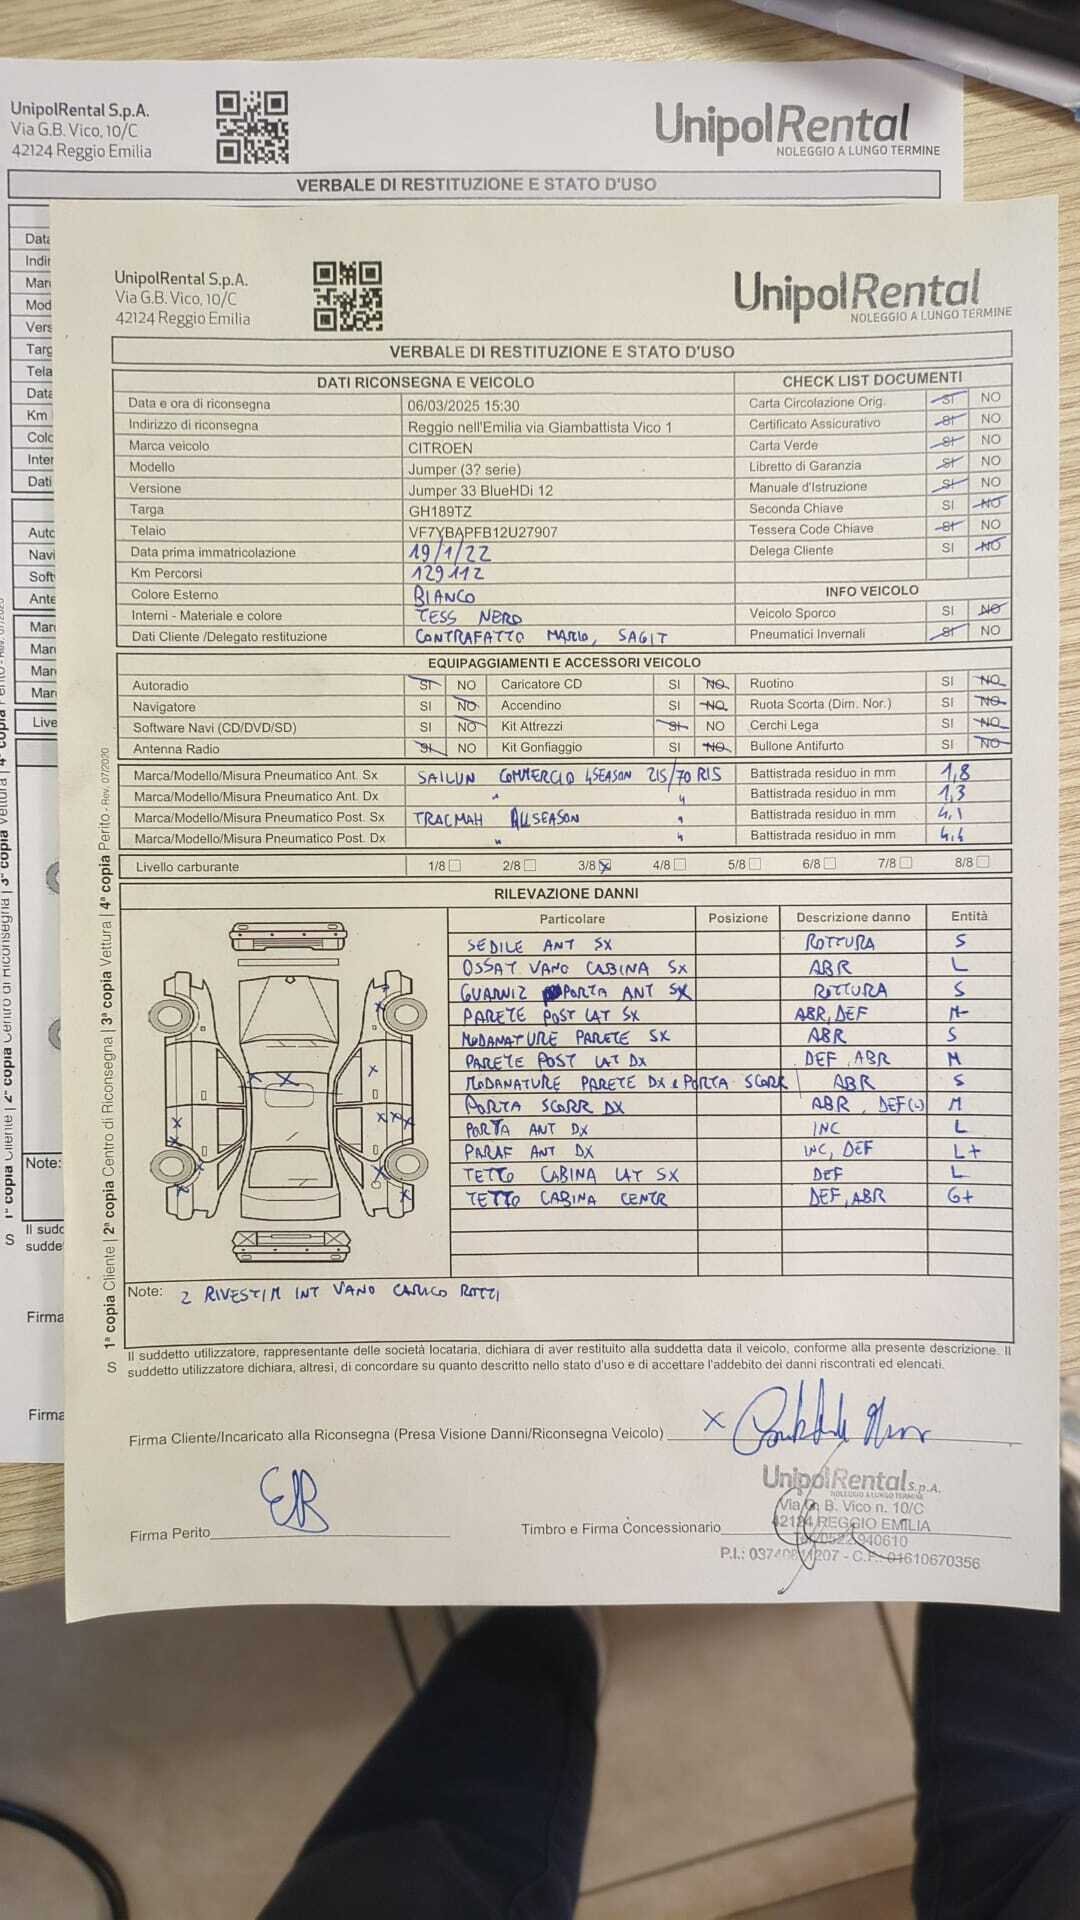 UnipolRental S.p.A.
Via G.B. Vico, 10/C
42124 Reggio Emilia
UnipolRental
NOLEGGIO A LUNGO TERMINE
VERBALE DI RESTITUZIONE E STATO D'USO
Data
Indir
Mar
Mod
Vers
Targ
Tela
Data
Km
Colo
Inter
Dati
Auto
Navi
Soft
Ante
Mar
Mar
Mar
Mar
Live
Note:
Il sudd
sudde
S
Firma
Firma
UnipolRental S.p.A.
Via G.B. Vico, 10/C
42124 Reggio Emilia
UnipolRental
NOLEGGIO A LUNGO TERMINE
VERBALE DI RESTITUZIONE E STATO D'USO
DATI RICONSEGNA E VEICOLO CHECK LIST DOCUMENTI
Data e ora di riconsegna 06/03/2025 15:30 Carta Circolazione Orig. SI NO
Indirizzo di riconsegna Reggio nell'Emilia via Giambattista Vico 1 Certificato Assicurativo SI NO
Marca veicolo CITROEN Carta Verde SI NO
Modello Jumper (3? serie) Libretto di Garanzia SI NO
Versione Jumper 33 BlueHDi 12 Manuale d'Istruzione SI NO
Targa GH189TZ Seconda Chiave SI NO
Telaio VF7YBAPFB12U27907 Tessera Code Chiave SI NO
Data prima immatricolazione 19/1/22 Delega Cliente SI NO
Km Percorsi 129112
Colore Esterno BIANCO INFO VEICOLO
Interni - Materiale e colore TESS NERO Veicolo Sporco SI NO
Dati Cliente /Delegato restituzione CONTRAFATTO MARIO, SAGIT Pneumatici Invernali SI NO
EQUIPAGGIAMENTI E ACCESSORI VEICOLO
Autoradio SI NO Caricatore CD SI NO Ruotino SI NO
Navigatore SI NO Accendino SI NO Ruota Scorta (Dim. Nor.) SI NO
Software Navi (CD/DVD/SD) SI NO Kit Attrezzi SI NO Cerchi Lega SI NO
Antenna Radio SI NO Kit Gonfiaggio SI NO Bullone Antifurto SI NO
Marca/Modello/Misura Pneumatico Ant. Sx SAILUN COMMERCIO 4SEASON 215/70 R15 Battistrada residuo in mm 1,8
Marca/Modello/Misura Pneumatico Ant. Dx " " Battistrada residuo in mm 1,3
Marca/Modello/Misura Pneumatico Post. Sx TRACMAH ALLSEASON " Battistrada residuo in mm 4,1
Marca/Modello/Misura Pneumatico Post. Dx " " Battistrada residuo in mm
Livello carburante 1/8 2/8 3/8 4/8 5/8 6/8 7/8 8/8
RILEVAZIONE DANNI
Particolare Posizione Descrizione danno Entità
SEDILE ANT SX ROTTURA S
OSSAT VANO CABINA SX ABR L
GUARNIZ PORTA ANT SX ROTTURA S
PARETE POST LAT SX ABR, DEF M-
MODANATURE PARETE SX ABR S
PARETE POST LAT DX DEF, ABR M
MODANATURE PARETE DX e PORTA SCORR ABR S
PORTA SCORR DX ABR, DEF(L) M
PORTA ANT DX INC L
PARAF ANT DX INC, DEF L+
TETTO CABINA LAT SX DEF L
TETTO CABINA CENTR DEF, ABR G+
Note: 2 RIVESTIM INT VANO CARICO ROTTI
1ª copia Cliente | 2ª copia Centro di Riconsegna | 3ª copia Vettura | 4ª copia Perito - Rev. 07/2020
S
Il suddetto utilizzatore, rappresentante delle società locataria, dichiara di aver restituito alla suddetta data il veicolo, conforme alla presente descrizione. Il
suddetto utilizzatore dichiara, altresì, di concordare su quanto descritto nello stato d'uso e di accettare l'addebito dei danni riscontrati ed elencati.
Firma Cliente/Incaricato alla Riconsegna (Presa Visione Danni/Riconsegna Veicolo) X
Firma Perito
Timbro e Firma Concessionario
UnipolRental S.p.A.
NOLEGGIO A LUNGO TERMINE
Via G. B. Vico n. 10/C
42124 REGGIO EMILIA
Tel. 0522.940610
- C.F.: 01610670356